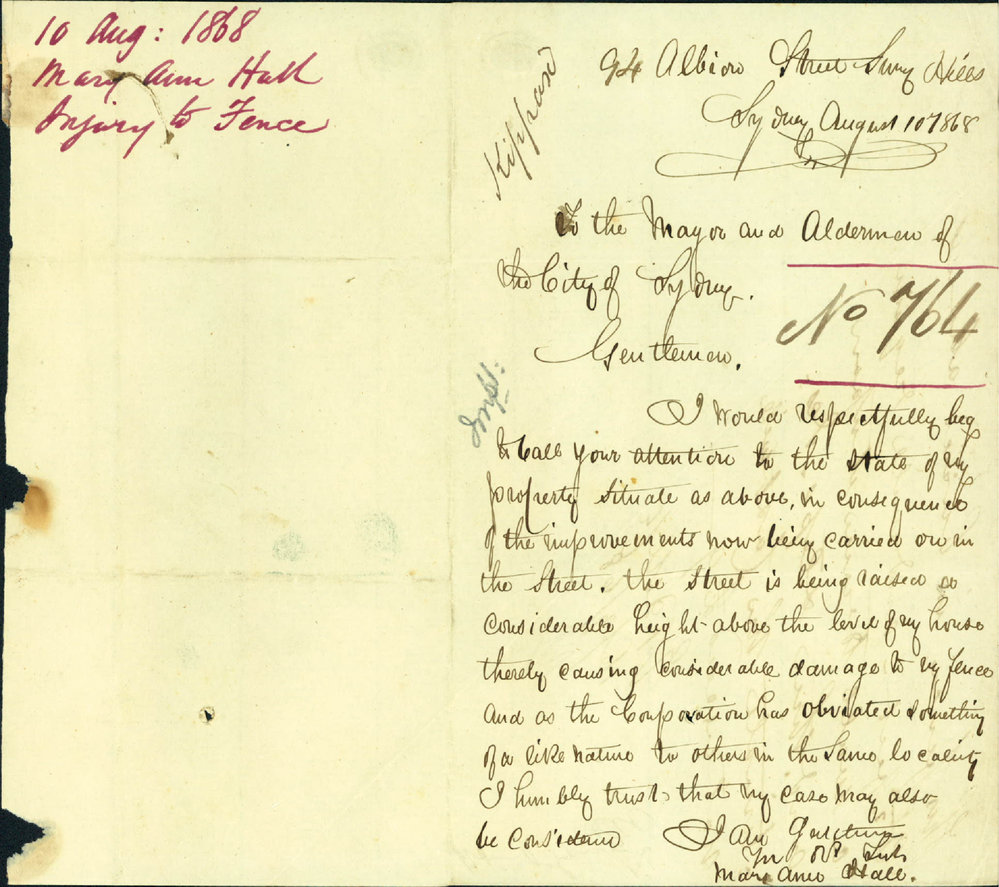 10 Aug: 1868
Mary Ann Hall
Injury to Fence
Kippax
94 Albion Street Surry Hills
Sydney August 10 1868
To the Mayor and Aldermen of
the City of Sydney.
No 764
Gentlemen.
I would respectfully beg
to Call your attention to the state of my
property situate as above, in consequence
of the improvements now being carried on in
the Street. the street is being raised a
considerable height above the level of my house
thereby causing considerable damage to my fence
and as the Corporation has obviated something
of a like nature to others in the same locality
I humbly trust that my case may also
be considered I am Gentlemen
Yr Obt Svt
Mary Ann Hall.